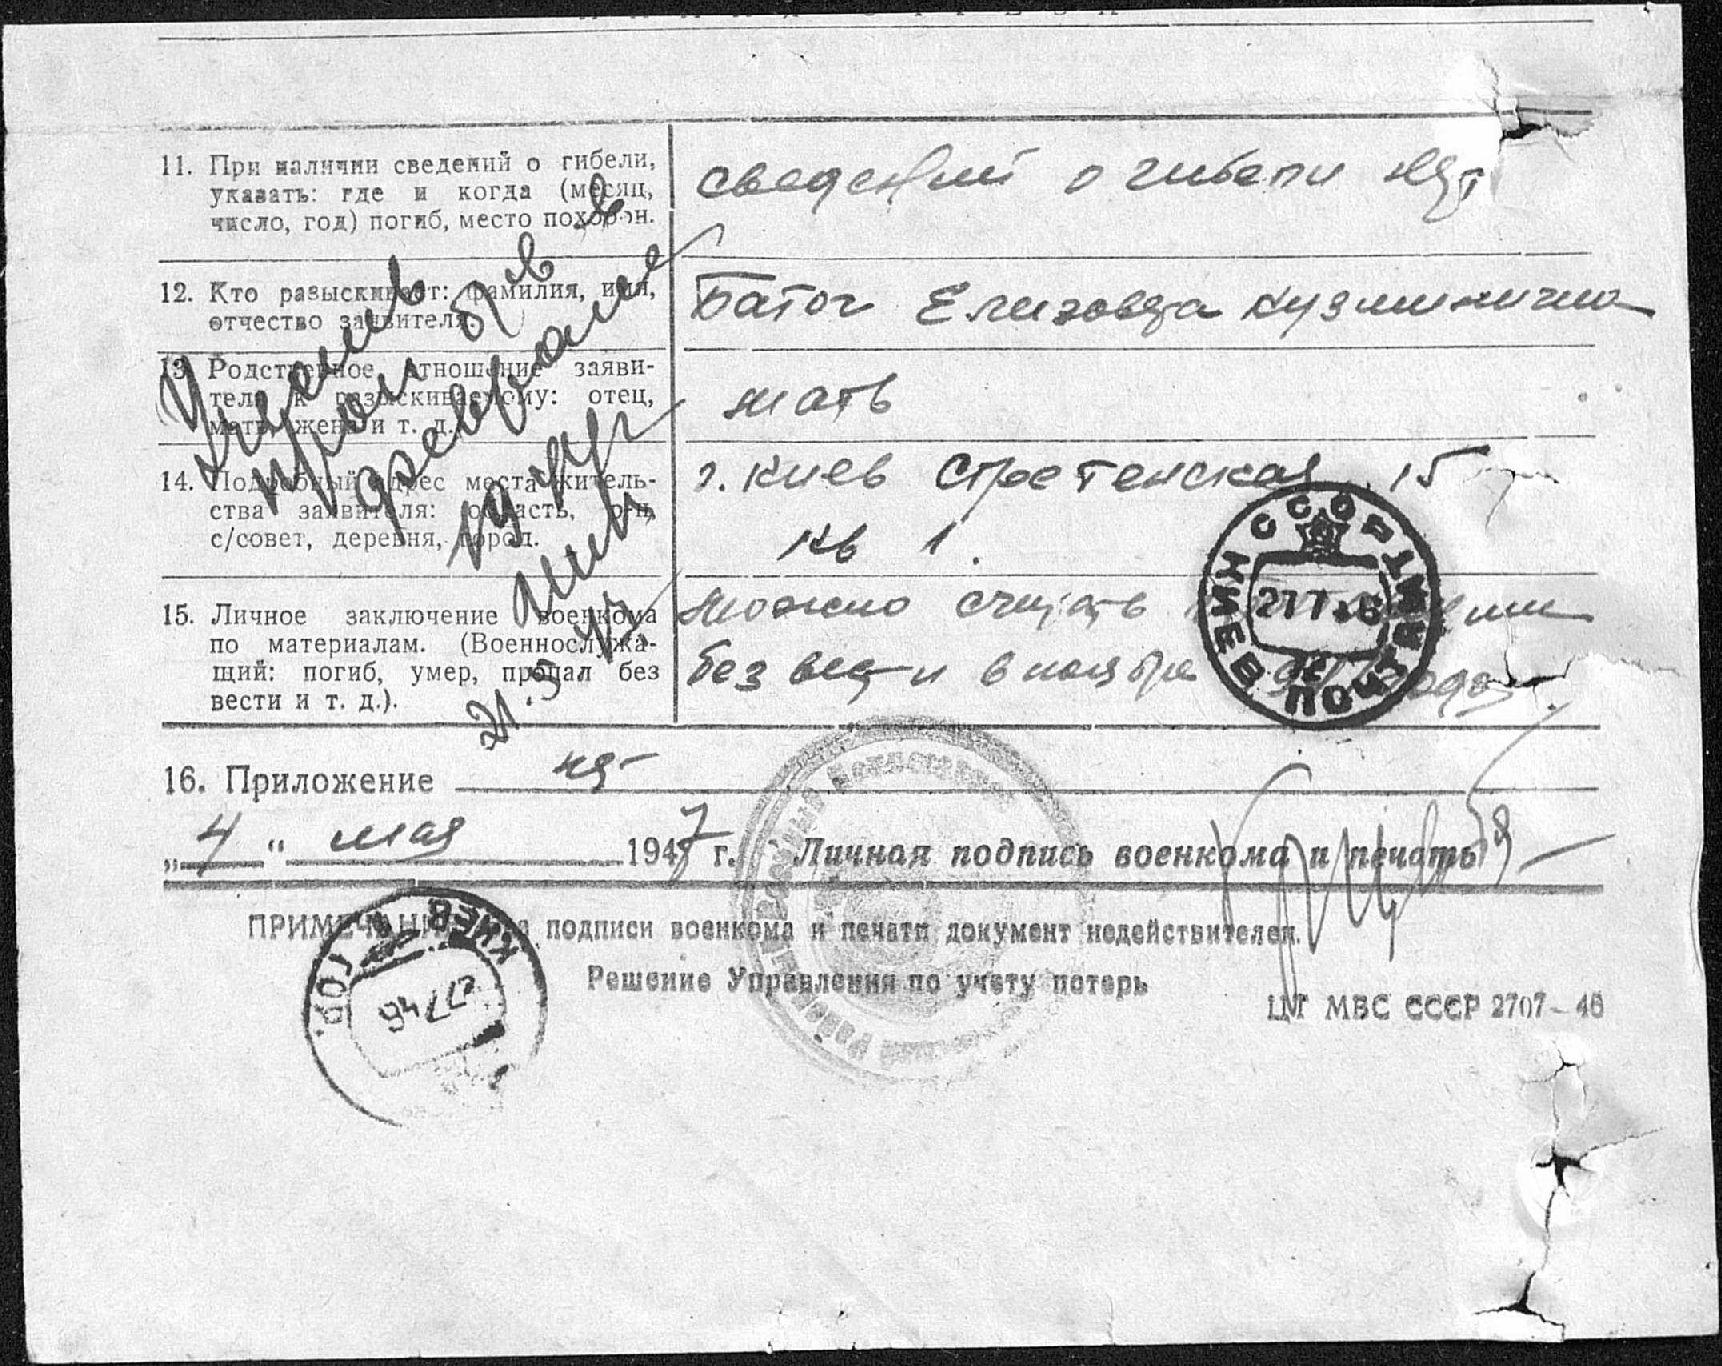 ЛИНИЯ ОТРЕЗА
11. При наличии сведений о гибели,
указать: где и когда (месяц,
число, год) погиб, место похорон.
сведений о гибели нет
12. Кто разыскивает: фамилия, имя,
отчество заявителя.
Батог Елизовета Кузминична
13. Родственное отношение заяви-
теля к разыскиваемому: отец,
мать, жена и т. д.
мать
14. Подробный адрес места житель-
ства заявителя: область, р-н,
с/совет, деревня, город.
г. Киев Стретенская 15
кв 1.
15. Личное заключение военкома
по материалам. (Военнослужа-
щий: погиб, умер, пропал без
вести и т. д.).
можно считать
без вести в ноябре года
Учесть
проп б/в в
феврале
19
21.5.47
16. Приложение
"4" мая 1947 г. Личная подпись военкома и печать
ПРИМЕЧАНИЕ: подписи военкома и печати документ недействителен.
Решение Управления по учету потерь
ЦТ МВС СССР 2707-46
СССР ПОЧТАМТ КИЕВ
КИЕВ ГОР.
27 7 46